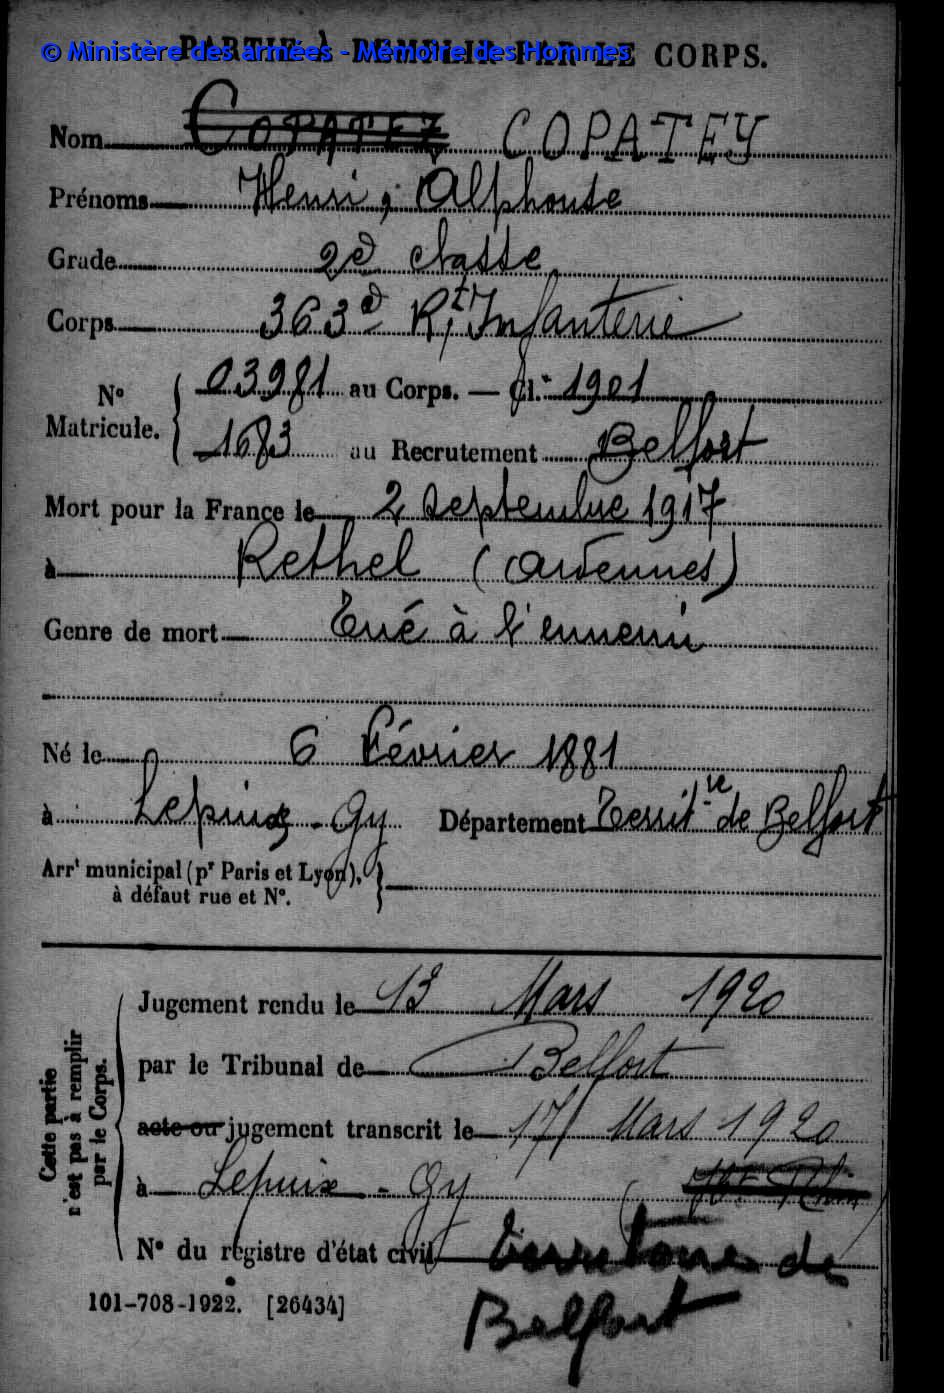 © Ministère des armées - Mémoire des Hommes
PARTIE À REMPLIR PAR LE CORPS.
Nom COPATEZ COPATEY
Prénoms Henri, Alphonse
Grade 2e classe
Corps 363e Rt Infanterie
No Matricule. { 03981 au Corps. — Cl. 1901
1683 au Recrutement Belfort
Mort pour la France le 2 septembre 1917
à Rethel (Ardennes)
Genre de mort Tué à l'ennemi
Né le 6 Février 1881
à Lepuix-Gy Département Territre de Belfort
Arrt municipal (pr Paris et Lyon),
à défaut rue et No.
Cette partie
n'est pas à remplir
par le Corps.
Jugement rendu le 13 Mars 1920
par le Tribunal de Belfort
acte ou jugement transcrit le 17 Mars 1920
à Lepuix-Gy (Ht Rhin)
No du registre d'état civil Territoire de
Belfort
101-708-1922. [26434]